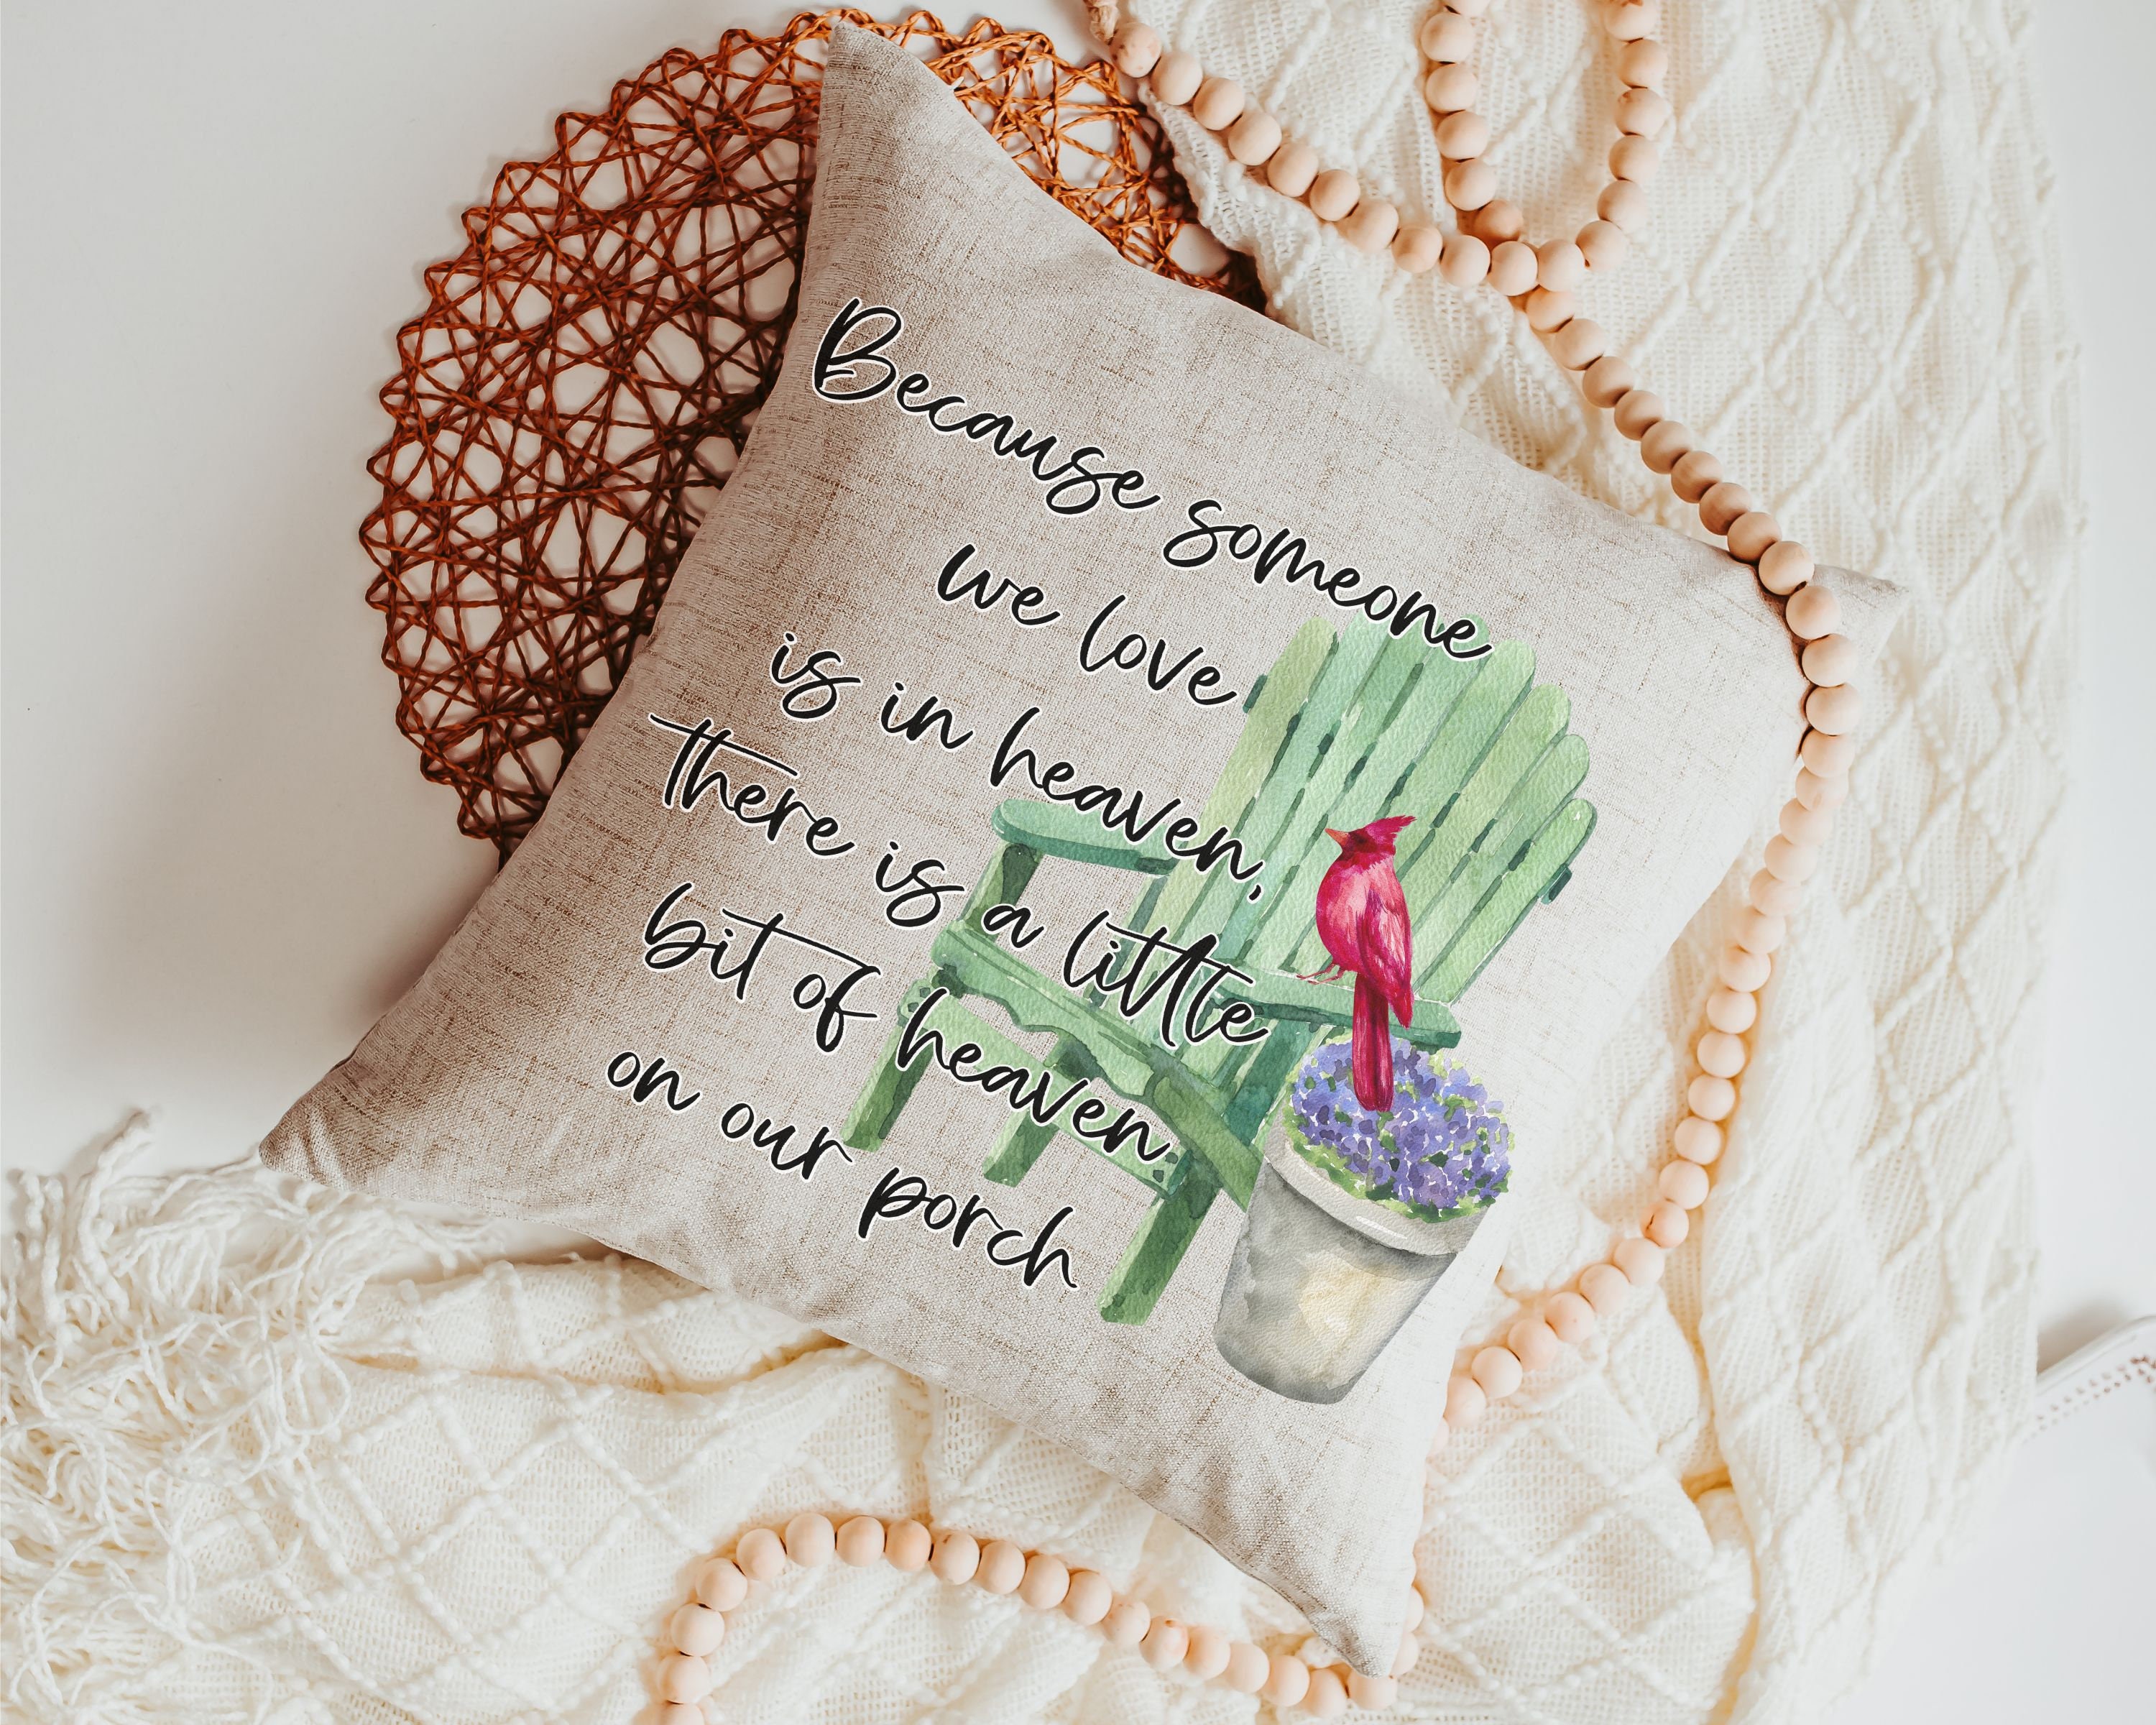 Because someone
we love
is in heaven,
there is a little
bit of heaven.
on our porch